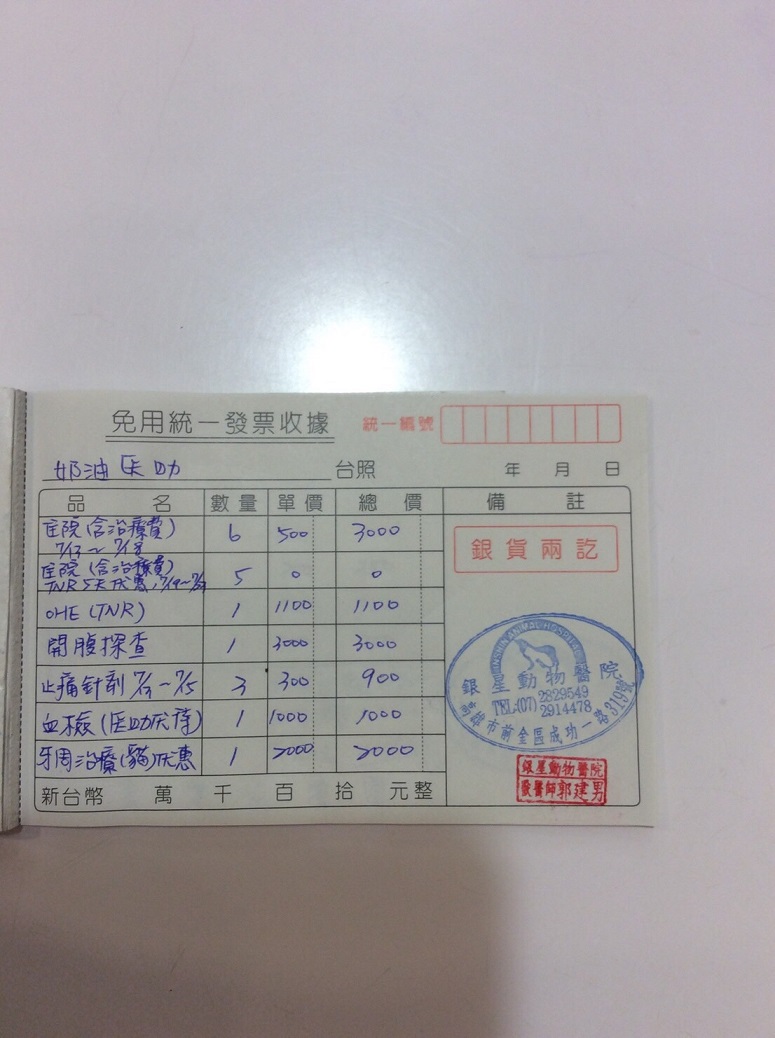 免用統一發票收據
統一編號
奶油 医助 台照 年 月 日
品 名 數量 單價 總價 備註
住院(含治療費) 7/13~7/18 6 500 3000
住院(含治療費)
TNR 5天优惠, 5 0 0
OHE (TNR) 1 1100 1100
開腹探查 1 3000 3000
止痛針劑 7/13~7/15 3 300 900
血檢(医助优待) 1 1000 1000
牙周治療(貓)优惠 1 2000 2000
新台幣 萬 千 百 拾 元整
銀貨兩訖
ANIMAL HOSPITAL
銀星動物醫院
TEL:(07) 2829549
2914478
高雄市前金區成功一路319號
銀星動物醫院
獸醫師郭建男